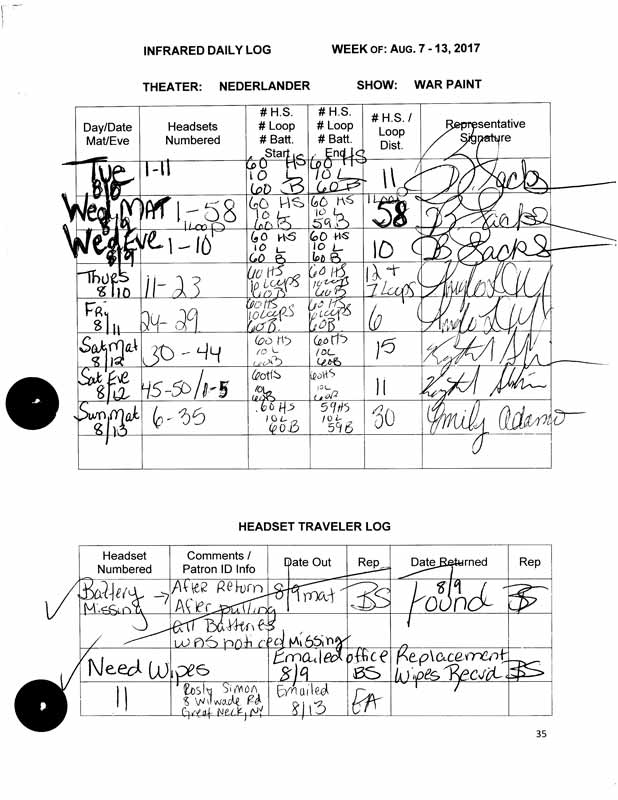 INFRARED DAILY LOG WEEK OF: AUG. 7 - 13, 2017
THEATER: NEDERLANDER SHOW: WAR PAINT
Day/Date Mat/Eve Headsets Numbered # H.S. # Loop # Batt. Start # H.S. # Loop # Batt. End # H.S. / Loop Dist. Representative Signature
Tue 8/8 1-11 60 HS 10 L 60 B 60 HS 10 L 60 B 11 B Sacks
Wed, MAT 8/9 1-58 1 Loop 60 HS 10 L 60 B 60 HS 10 L 59 B 1 Loop 58 B Sacks
Wed Eve 8/9 1-10 60 HS 10 L 60 B 60 HS 10 L 60 B 10 B Sacks
Thurs 8/10 11-23 60 HS 10 Loops 60 B 60 HS 10 Loops 60 B 12 + 7 Loops
Fri 8/11 24-29 60 HS 10 Loops 60 B. 60 HS 10 Loops 60 B 6
Sat, Mat 8/12 30-44 60 HS 10 L 60 B 60 HS 10 L 60 B 15
Sat Eve 8/12 45-50/1-5 60 HS 10 L 60 B 60 HS 10 L 60 B 11
Sun, Mat 8/13 6-35 60 HS 10 L 60 B 59 HS 10 L 59 B 30 Emily Adamo
HEADSET TRAVELER LOG
Headset Numbered Comments / Patron ID Info Date Out Rep Date Returned Rep
Battery Missing After Return 8/9 mat BS 8/9 Found BS
After pulling
all Batteries
was noticed Missing
Need Wipes Emailed office 8/9 BS Replacement Wipes Recvd BS
11 Rosly Simon Emailed 8/13 EA
8 Wilwade Rd
Great Neck, NY
35